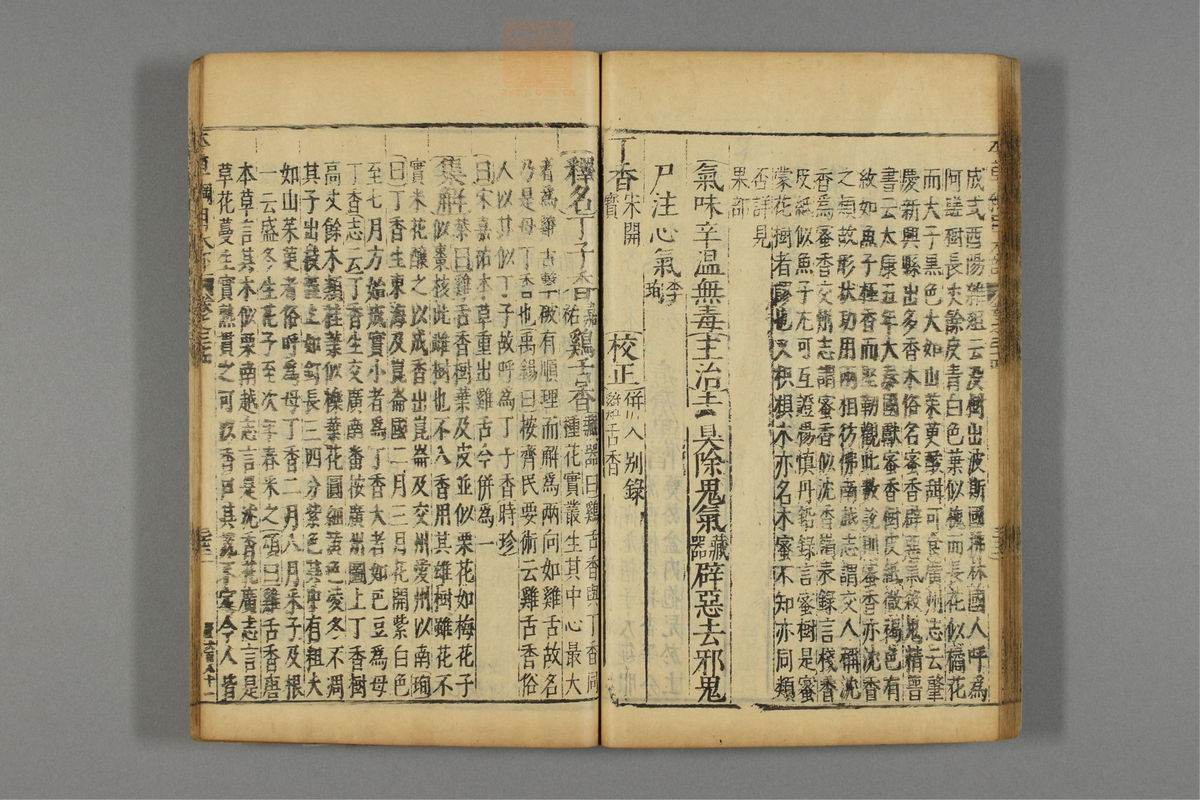 成式酉陽雜俎云沒樹出波斯國拂林國人呼為
阿𦈏樹長丈餘皮青白色葉似槐而長花似橘花
而大子黑色大如山茱萸酸甜可食廣州志云肇
慶新興縣出多香木俗名蜜香辟惡氣殺鬼精晉
書云太康五年大秦國獻蜜香樹皮紙微褐色有
紋如魚子極香而堅韌觀此數說則蜜香亦沈香
之類故形狀功用兩相彷彿南越志謂交人稱沈
香為蜜香交州志謂蜜香似沈香嶺表錄言棧香
皮紙似魚子尤可互證楊慎丹鉛錄言蜜樹是蜜
蒙花樹者謬也又枳椇木亦名木蜜不知亦同類
否詳見
果部
氣味辛溫無毒主治去臭除鬼氣藏器辟惡去邪鬼
尸注心氣李珣
丁香宋開寶 校正併入別錄雞舌香
釋名丁子香嘉祐雞舌香藏器曰雞舌香與丁香同種花實叢生其中心最大
者為雞舌擊破有順理而解為兩向如雞舌故名
乃是母丁香也禹錫曰按齊民要術云雞舌香俗
人以其似丁子故呼為丁子香時珍
曰宋嘉祐本草重出雞舌今併為一
集解恭曰雞舌香樹葉及皮並似栗花如梅花子
似棗核此雌樹也不入香用其雄樹雖花不
實采花釀之以成香出崑崙及交州愛州以南珣
曰丁香生東海及崑崙國二月三月花開紫白色
至七月方始成實小者為丁香大者如巴豆為母
丁香志曰丁香生交廣南番按廣州圖上丁香樹
高丈餘木類桂葉似櫟葉花圓細黃色凌冬不凋
其子出枝蕊上如釘長三四分紫色其中有粗大
如山茱萸者俗呼為母丁香二月八月采子及根
一云盛冬生花子至次年春采之頌曰雞舌香唐
本草言其木似栗南越志言是沈香花廣志言是
草花蔓生實熟貫之可以香口其說不定今人皆